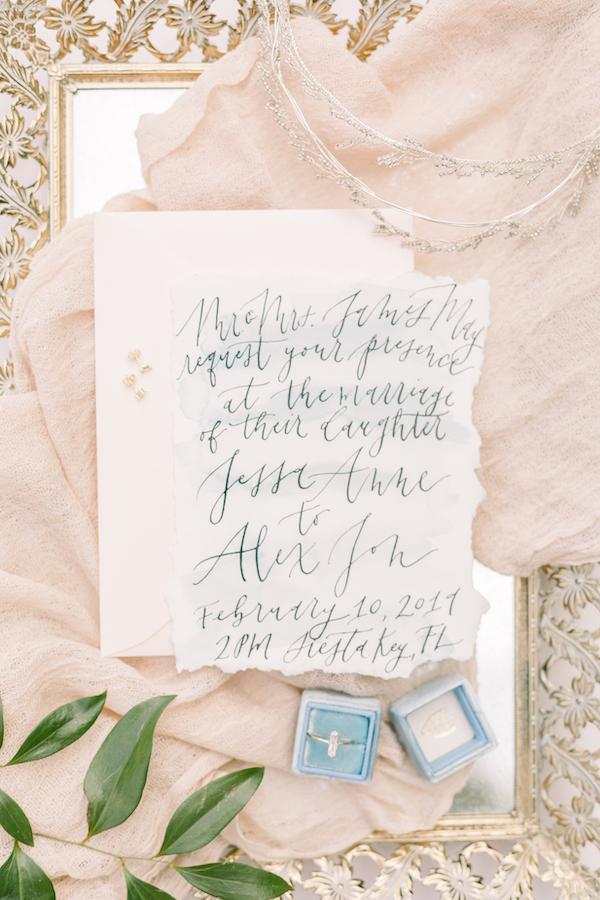 Mr & Mrs. James May
request your presence
at the marriage
of their daughter
Jessa Anne
to
Alex Jon
February 10, 2019
2PM Siesta Key, FL